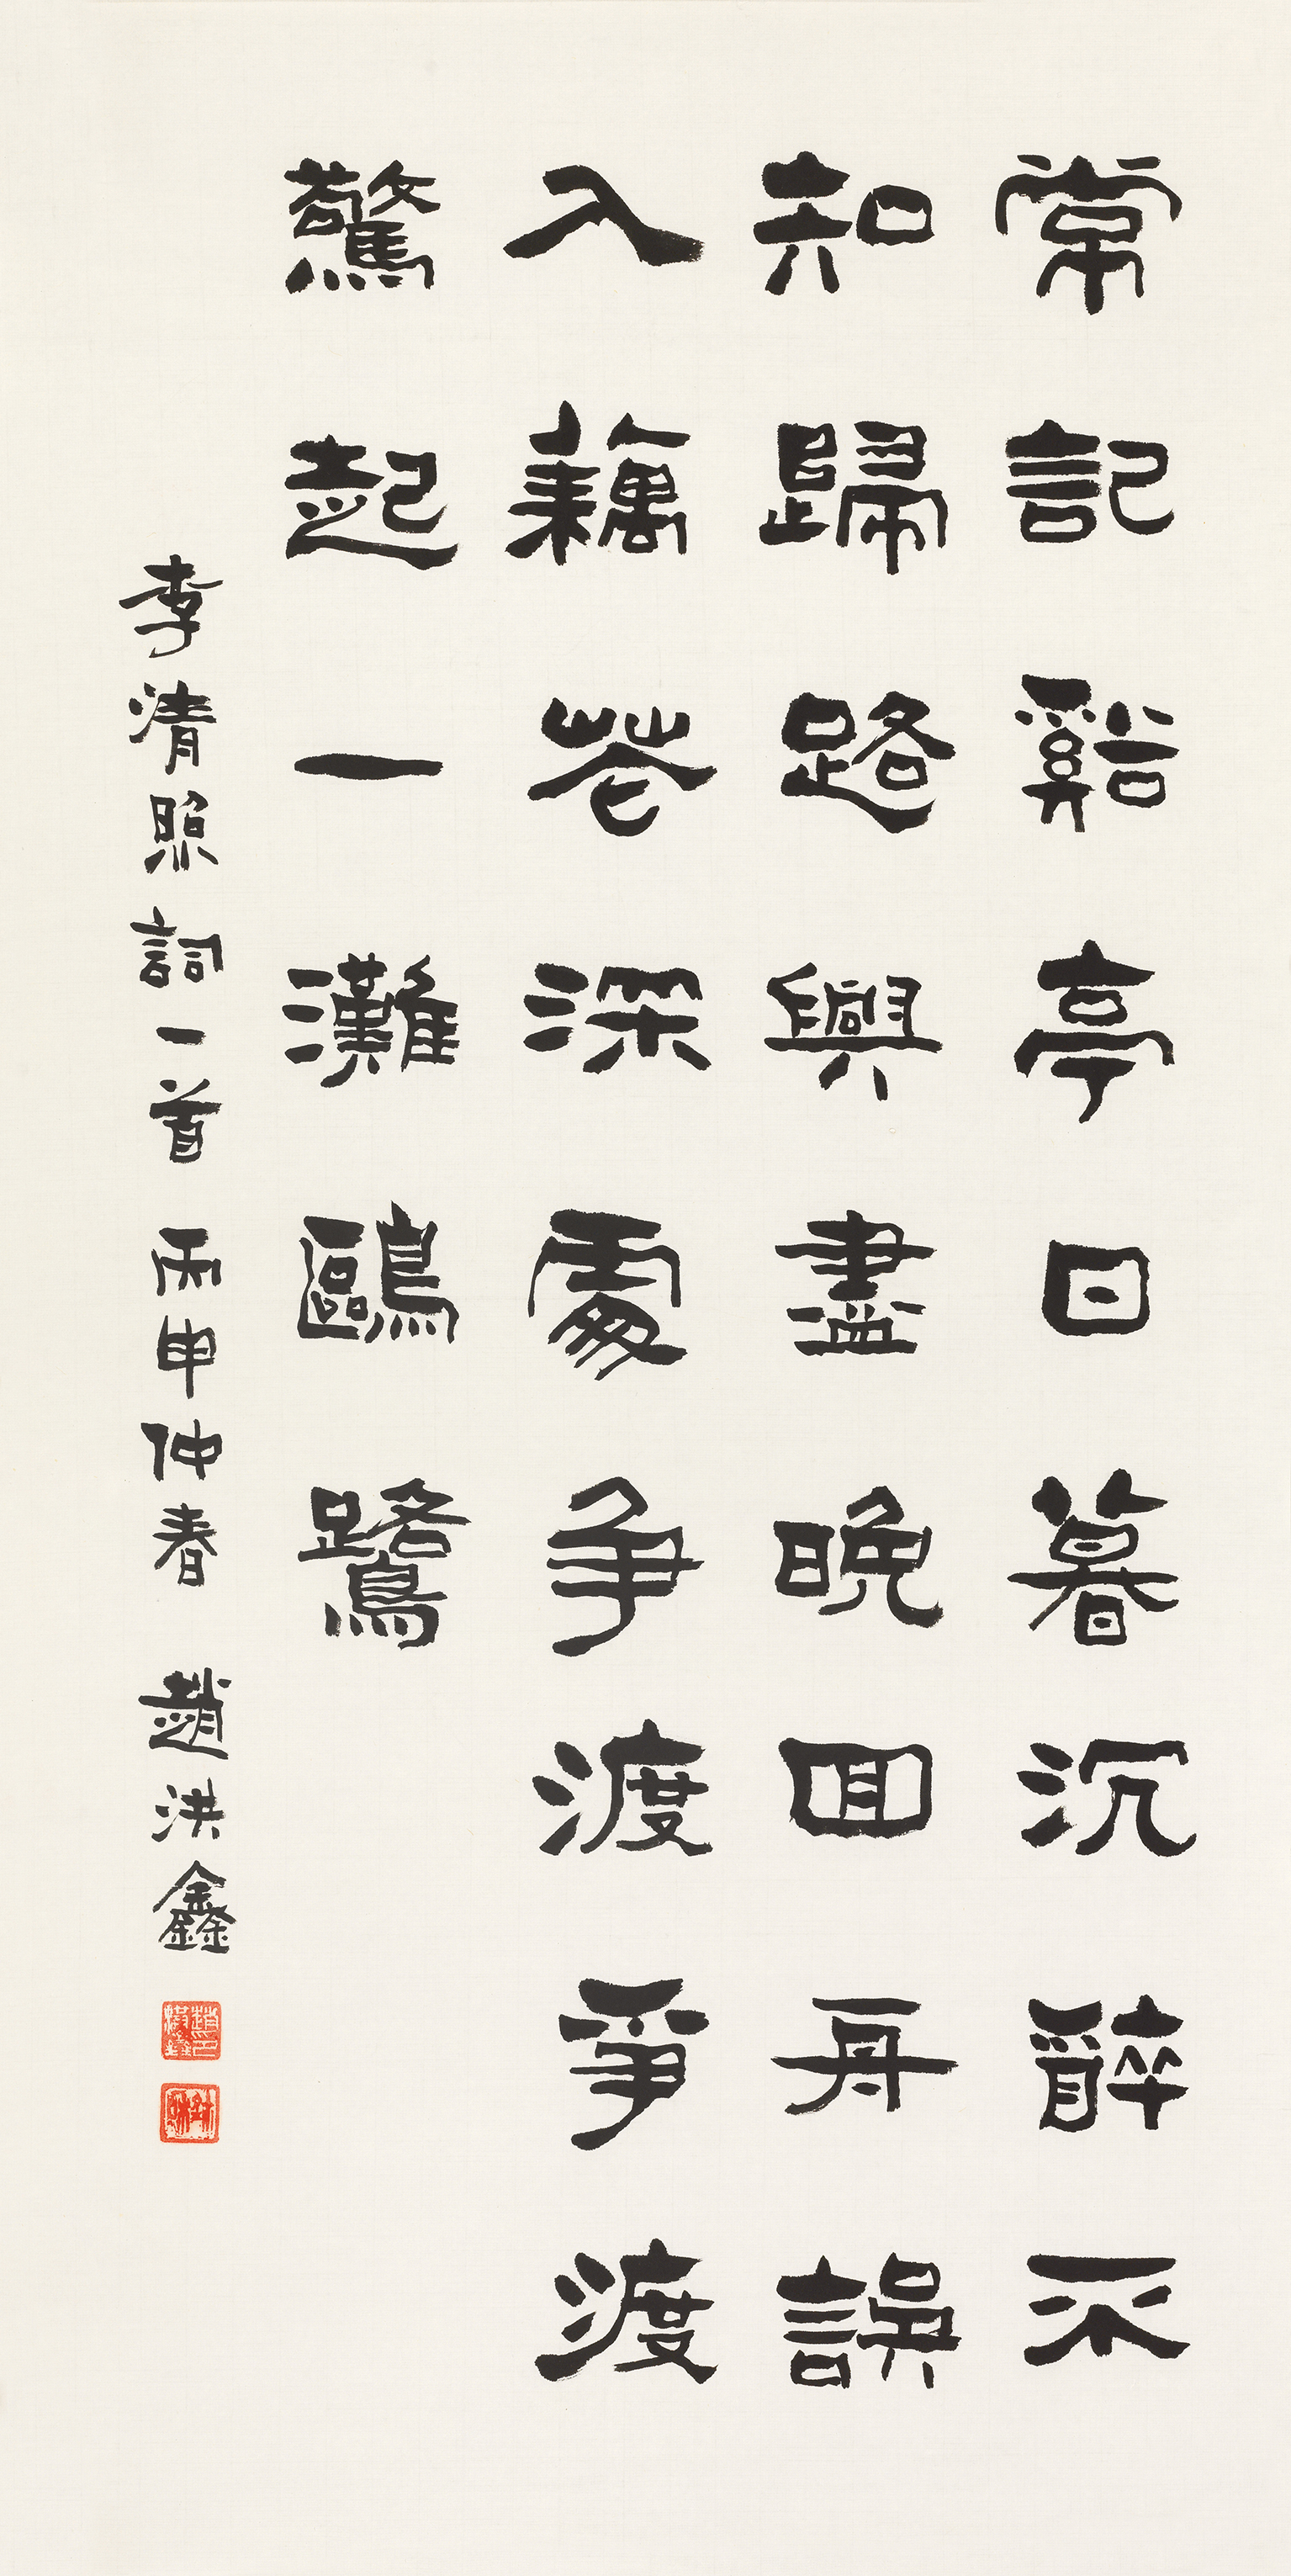 常記谿亭日暮沉醉不
知歸路興盡晚回舟誤
入藕花深處争渡爭渡
驚起一灘鷗鷺
李清照詞一首 丙申仲春 趙洪鑫